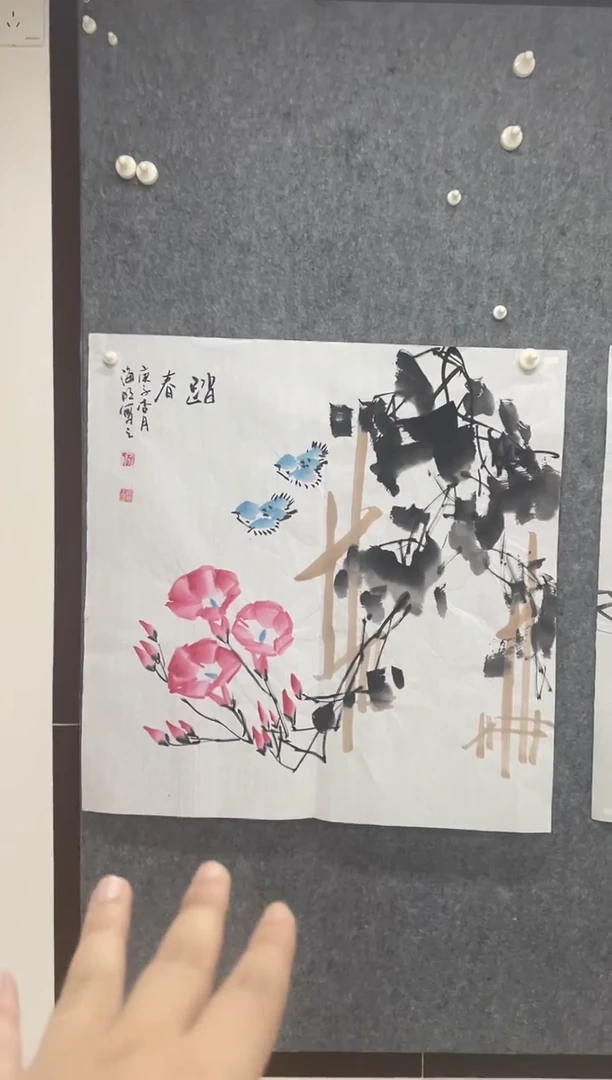 踏春
庚子杏月
海明写之